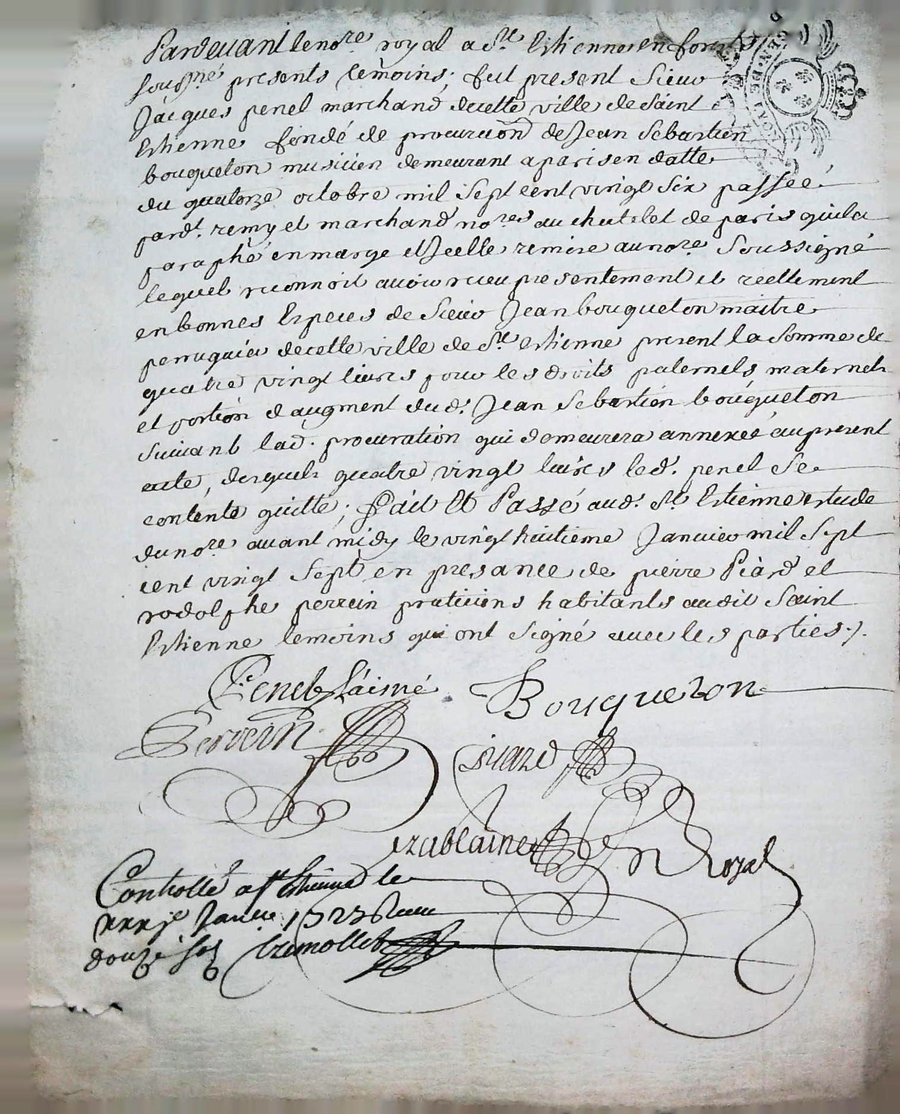 Pardevant le no.re royal a S.t Estienne en forests
sous.né presents temoins; fut present Sieur
Jacques penel marchand decette ville de Saint
Estienne fondé de procuraon de Jean Sebastien
bouqueton musicien demeurant a paris en datte
du quatorze octobre mil Sept cent vingt Six passeé
pard.t remy et marchand no.res au chatelet de paris quila
paraphé en marge et Jcelle remise au no.re Soussigné
lequel reconnoit avoir receu presentement et reellement
en bonnes Especes de Sieur Jean bouqueton maitre
perruquier decette ville de S.t estienne present la Somme de
quatre vingt livres pour les droits paternels maternels
et portion d'augment dud. Jean Sebastien bouqueton
Suivant lad. procuration qui demeurera annexeé aupresent
acte, desquels quatre vingt livres led. penel Se
contente quitte; Fait Et Passé aud. St Estienne estude
dunore avant midy le vingt huitieme Janvier mil Sept
cent vingt Sept en presance de pierre Piard et
rodolphe perrein praticiens habitants audit Saint
Estienne temoins qui ont Signé avec les parties ./.
Penel L'aimé Bouqueton
Perrein piard
n Royal
Controllé a St Etienne le
xxxje Janvier 1727
douze sols